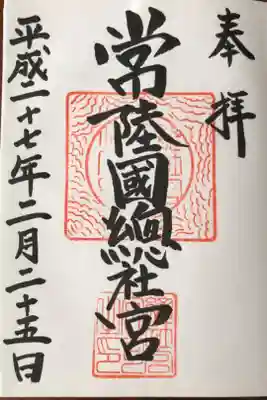 奉拝
常陸國總社宮
平成二十七年二月二十五日